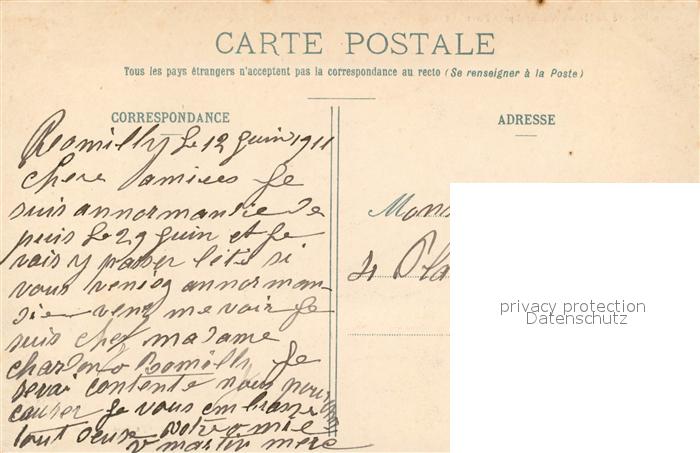 CARTE POSTALE
Tous les pays étrangers n'acceptent pas la correspondance au recto (Se renseigner à la Poste)
CORRESPONDANCE
ADRESSE
Romilly Le 12 Juin 1911
chere amies Je
suis annormandie De
puis Le 29 Juin et Je
vais y passer l'été si
vous veniez annorman-
Die venez me voir Je
suis chez madame
Romilly Je
serai contente nous pourrons
causer Je vous embrasse
tout deux votre amie
v martin mere
Mons
4 Pla
privacy protection
Datenschutz